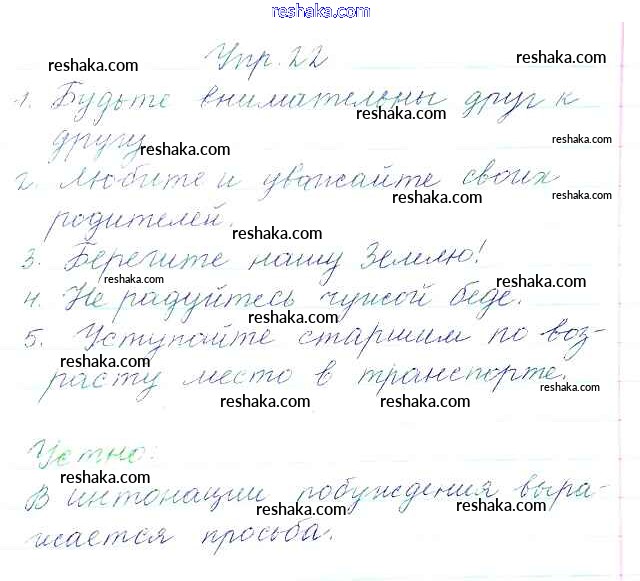 reshaka.com
Упр. 22
reshaka.com
reshaka.com
1. Будьте внимательны друг к
reshaka.com
другу
reshaka.com
reshaka.com
2. Любите и уважайте своих
reshaka.com
reshaka.com
родителей.
reshaka.com
3. Берегите нашу Землю!
reshaka.com
reshaka.com
4. Не радуйтесь чужой беде.
reshaka.com
5. Уступайте старшим по воз-
reshaka.com
reshaka.com
расту место в транспорте.
reshaka.com
reshaka.com
reshaka.com
Устно:
reshaka.com
reshaka.com
В интонации побуждения выра-
reshaka.com
reshaka.com
жается просьба.
reshaka.com